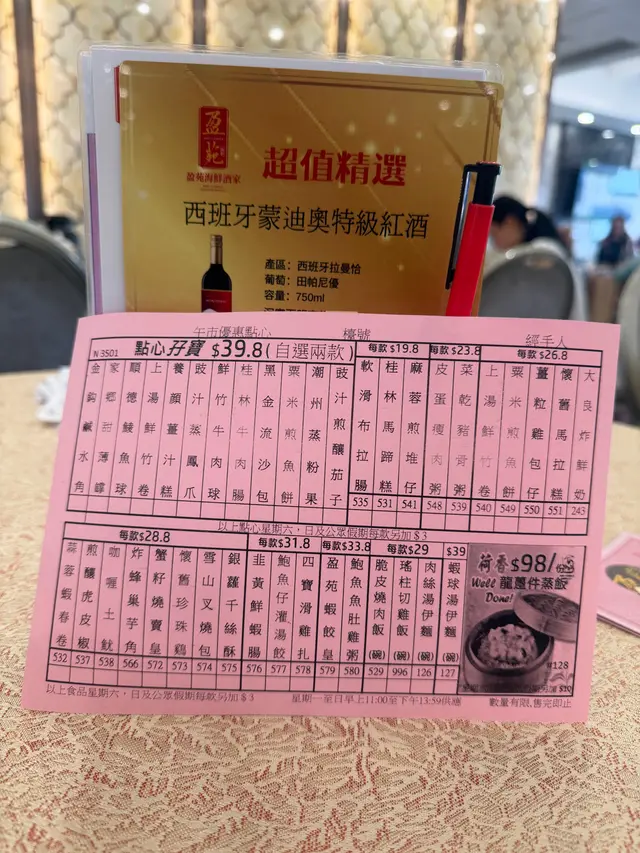 盈苑
盈苑海鮮酒家
超值精選
西班牙蒙迪奧特級紅酒
產區：西班牙拉曼恰
葡萄：田帕尼優
容量：750ml
午市優惠點心 檯號 經手人
N 3501 點心孖寶 $39.8(自選兩款)
每款$19.8 每款$23.8 每款$26.8
金鈎鹹水角
家鄉甜薄罉
順德鯪魚球
上湯鮮竹卷
養顏薑汁糕
豉汁蒸鳳爪
鮮竹牛肉球
桂林牛肉腸
黑金流沙包
粟米煎魚餅
潮州蒸粉果
豉汁煎釀茄子
軟滑布拉腸 535
桂林馬蹄糕 531
麻蓉煎堆仔 541
皮蛋瘦肉粥 548
菜乾豬骨粥 539
上湯鮮竹卷 540
粟米魚肉餅 549
薑粒雞包仔 550
懷舊馬拉糕 551
大良炸鮮奶 243
以上點心星期六，日及公眾假期每款另加$3
每款$28.8 每款$31.8 每款$33.8 每款$29 $39
蒜蓉蝦春卷 532
煎釀虎皮椒 537
咖喱土魷 538
炸蜂巢芋角 566
蟹籽燒賣皇 572
懷舊珍珠雞 573
雪山叉燒包 574
銀蘿千絲酥 575
韭黃鮮蝦腸 576
鮑魚仔灌湯餃 577
四寶滑雞扎 578
盈苑蝦餃皇 579
鮑魚魚肚雞粥 580
脆皮燒肉飯(碗) 529
瑤柱切雞飯(碗) 996
肉絲湯伊麵(碗) 126
蝦球湯伊麵(碗) 127
荷香 $98/份
Well 龍躉件蒸飯
Done!
#128
以上食品星期六，日及公眾假期每款另加$3 星期一至日早上11:00至下午13:59供應 數量有限,售完即止